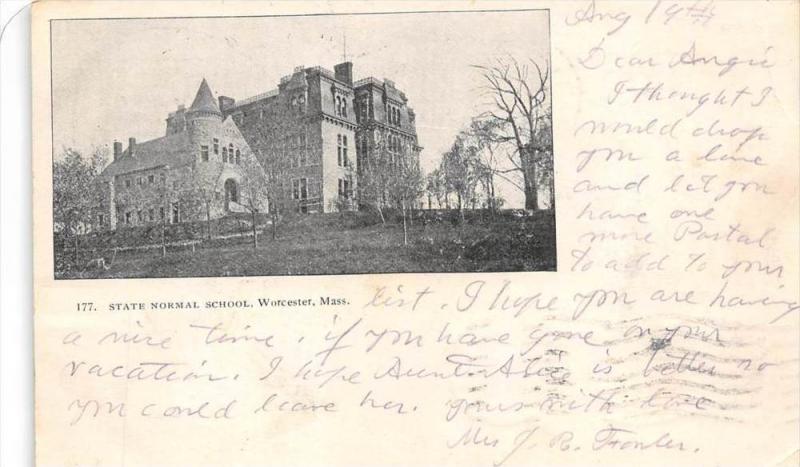 Aug 19th
Dear Angie
I thought I
would drop
you a line
and let you
have one
more Postal
to add to your
177. STATE NORMAL SCHOOL, Worcester, Mass.
list. I hope you are having
a nice time, if you have gone on your
vacation. I hope Aunt Alice is better so
you could leave her. yours with love
Mrs J. R.